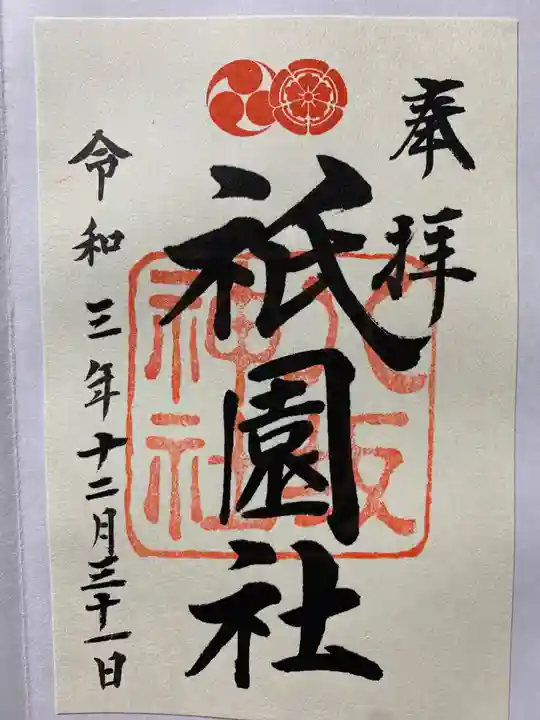 奉拝
祇園社
八坂
神社
令和三年十二月三十一日